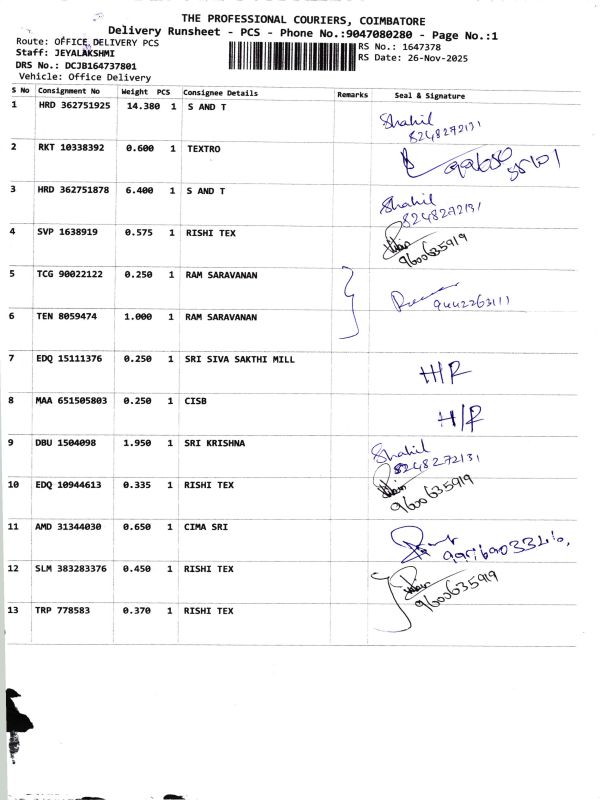 THE PROFESSIONAL COURIERS, COIMBATORE
Delivery Runsheet - PCS - Phone No.:9047080280 - Page No.:1
Route: OFFICE DELIVERY PCS
Staff: JEYALAKSHMI
DRS No.: DCJB164737801
Vehicle: Office Delivery
RS No.: 1647378
RS Date: 26-Nov-2025
S No Consignment No Weight PCS Consignee Details Remarks Seal & Signature
1 HRD 362751925 14.380 1 S AND T
Shahil
8248272131
2 RKT 10338392 0.600 1 TEXTRO
3 HRD 362751878 6.400 1 S AND T
Shahil
8248272131
4 SVP 1638919 0.575 1 RISHI TEX
9600635919
5 TCG 90022122 0.250 1 RAM SARAVANAN
9442263111
6 TEN 8059474 1.000 1 RAM SARAVANAN
7 EDQ 15111376 0.250 1 SRI SIVA SAKTHI MILL
H/R
8 MAA 651505803 0.250 1 CISB
H/R
9 DBU 1504098 1.950 1 SRI KRISHNA
Shahil
8248272131
10 EDQ 10944613 0.335 1 RISHI TEX
9600635919
11 AMD 31344030 0.650 1 CIMA SRI
12 SLM 383283376 0.450 1 RISHI TEX
9600635919
13 TRP 778583 0.370 1 RISHI TEX